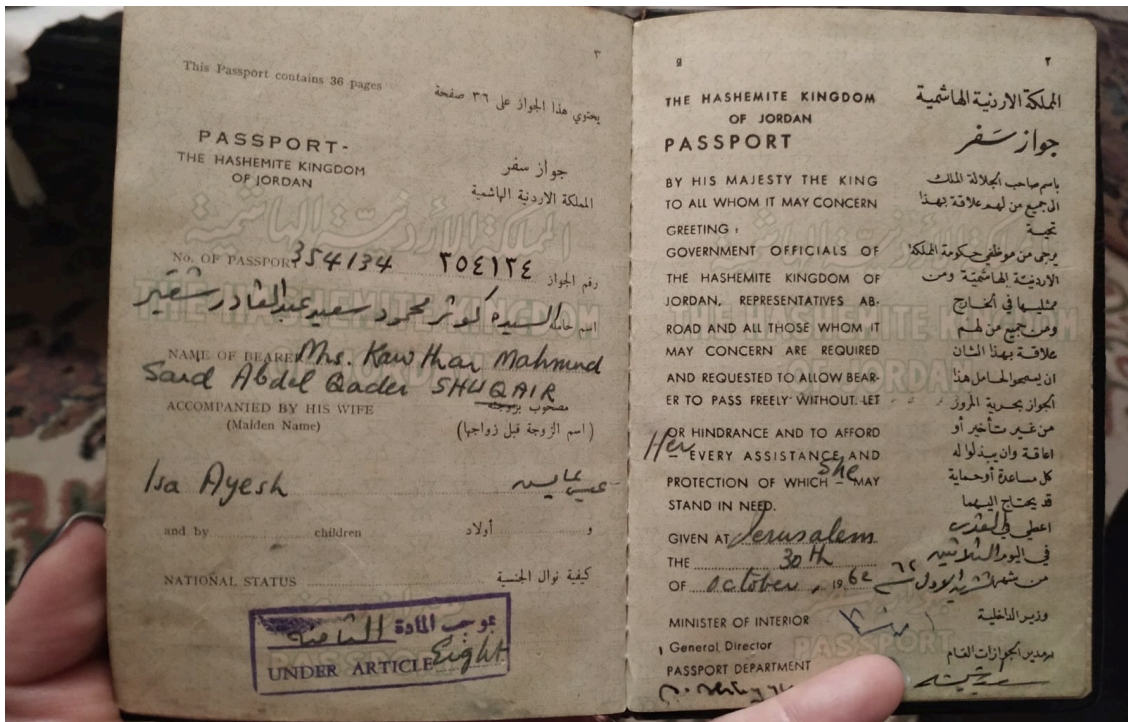 ٣
This Passport contains 36 pages
يحتوي هذا الجواز على ٣٦ صفحة
PASSPORT-
THE HASHEMITE KINGDOM
OF JORDAN
جواز سفر
المملكة الاردنية الهاشمية
No. OF PASSPORT 354134 ٣٥٤١٣٤ رقم الجواز
اسم حامله السيدة كوثر محمود سعيد عبدالقادر شقير
NAME OF BEARER Mrs. Kawthar Mahmud
Said Abdel Qader SHUQAIR
ACCOMPANIED BY HIS WIFE مصحوب بزوجته
(Maiden Name) (اسم الزوجة قبل زواجها)
Isa Ayesh عيسى عايش
and by children و أولاد
NATIONAL STATUS كيفية نوال الجنسية
بموجب المادة الثامنة
UNDER ARTICLE Eight
g ٢
THE HASHEMITE KINGDOM
OF JORDAN
PASSPORT
BY HIS MAJESTY THE KING
TO ALL WHOM IT MAY CONCERN
GREETING :
GOVERNMENT OFFICIALS OF
THE HASHEMITE KINGDOM OF
JORDAN, REPRESENTATIVES AB-
ROAD AND ALL THOSE WHOM IT
MAY CONCERN ARE REQUIRED
AND REQUESTED TO ALLOW BEAR-
ER TO PASS FREELY WITHOUT LET
OR HINDRANCE AND TO AFFORD
Her EVERY ASSISTANCE AND
PROTECTION OF WHICH She MAY
STAND IN NEED.
GIVEN AT Jerusalem
THE 30th
OF October, 1962
MINISTER OF INTERIOR
General Director
PASSPORT DEPARTMENT
المملكة الاردنية الهاشمية
جواز سَفر
باسم صاحب الجلالة الملك
الى جميع من لهم علاقة بهذا
تحية
يرجى من موظفي حكومة المملكة
الاردنية الهاشمية ومن
ممثليها في الخارج
ومن جميع من لهم
علاقة بهذا الشان
ان يسمحوا لحامل هذا
الجواز بحرية المرور
من غير تأخير أو
اعاقة وان يبذلوا له
كل مساعدة أو حماية
قد يحتاج اليهما
اعطي في القدس
في اليوم الثلاثين
من شهر تشرين الاول ٦٢
وزير الداخلية
مدير الجوازات العام